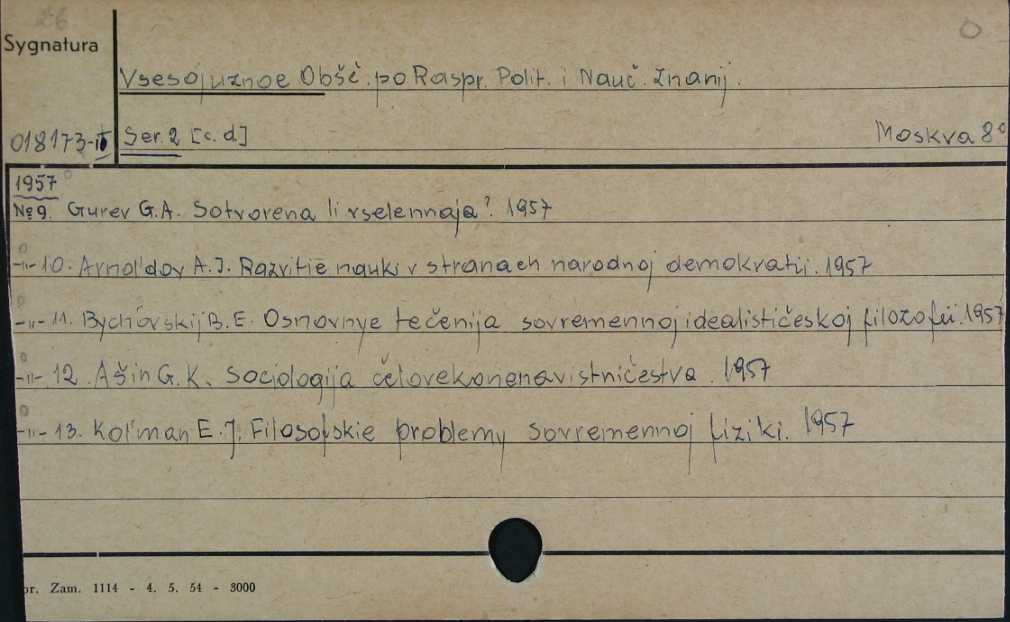 26
Sygnatura
Vsesojuznoe Obšč. po Raspr. Polit. i Nauč. Znanij.
018173-II Ser. 2 [c.d] Moskva 8°
1957
№ 9. Gurev G.A. Sotvorena li vselennaja? 1957
-"- 10. Arnol'dov A.I. Razvitie nauki v stranach narodnoj demokratii. 1957
-"- 11. Bychovskij B.E. Osnovnye tečenija sovremennoj idealističeskoj filozofii. 1957
-"- 12. Ašin G.K. Sociologija čelovekonenavistničestva. 1957
-"- 13. Kol'man E.J. Filosofskie problemy sovremennoj fiziki. 1957
Zam. 1114 - 4. 5. 54 - 3000